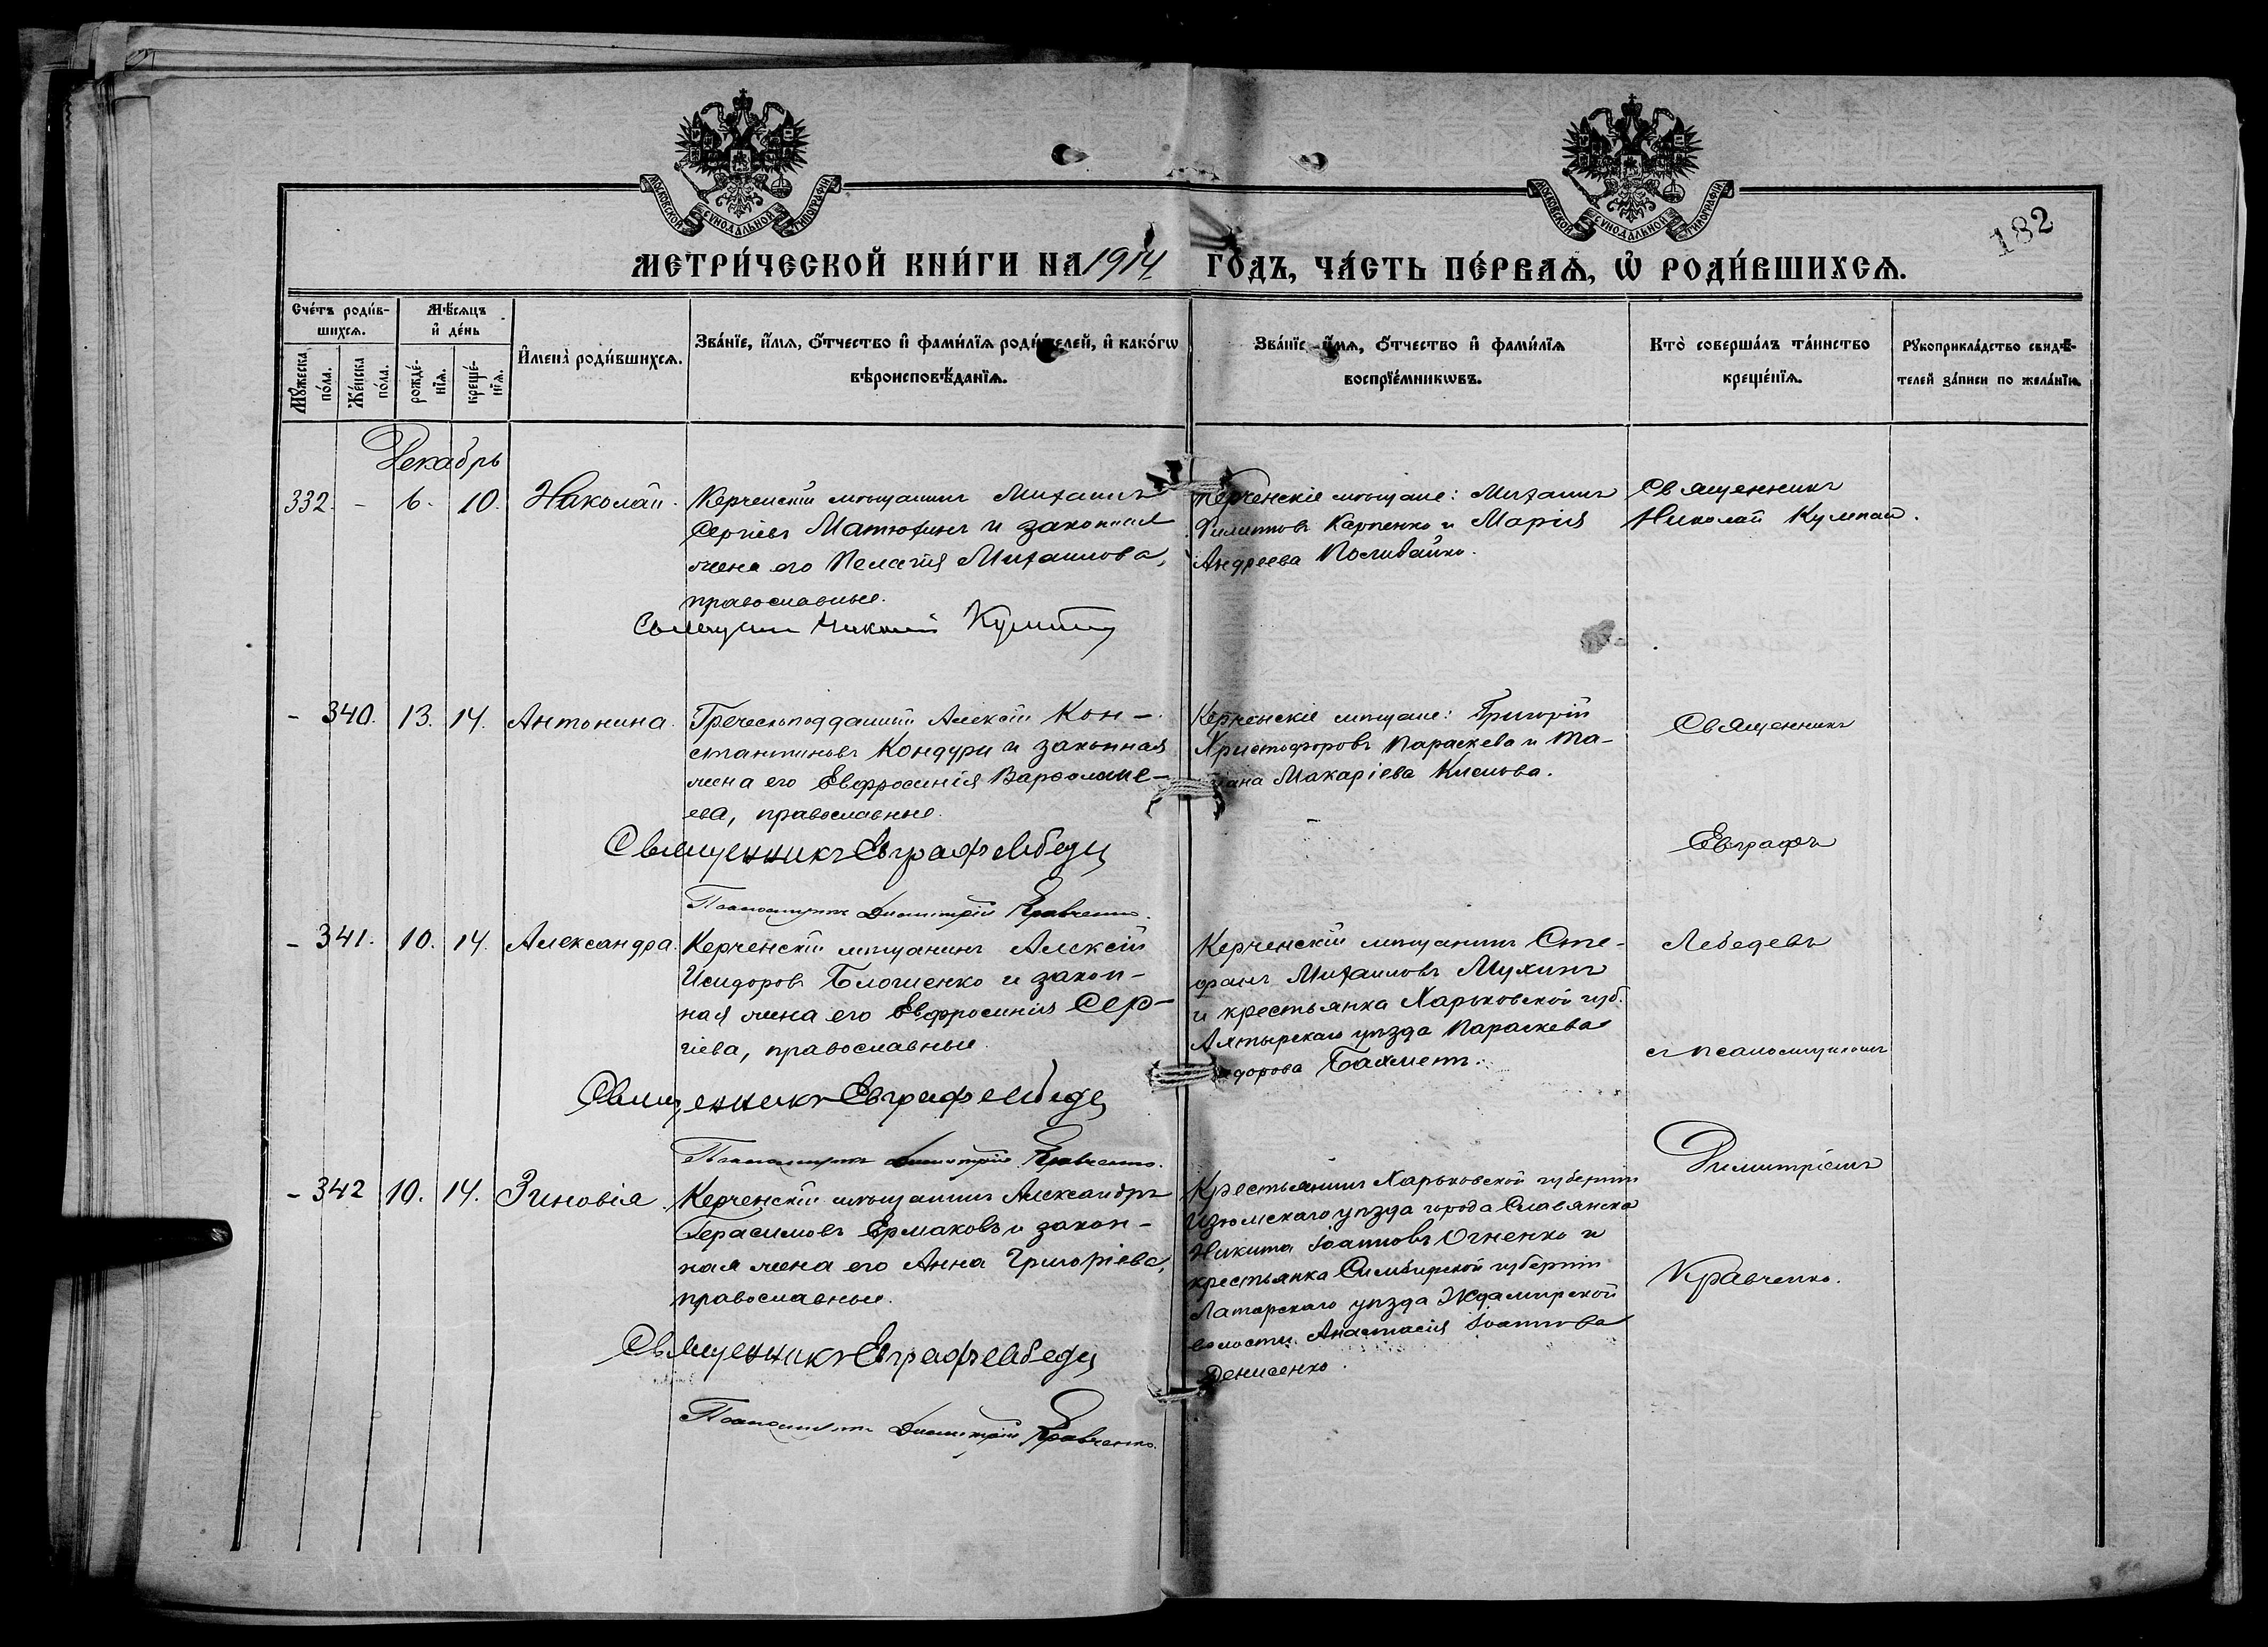 МОСКОВСКОЙ СѴНОДАЛЬНОЙ ТИПОГРАФІИ
МОСКОВСКОЙ СѴНОДАЛЬНОЙ ТИПОГРАФІИ
182
МЕТРИ́ЧЕСКОЙ КНИ́ГИ НА 1914 ГО́ДЪ, ЧА́СТЬ ПЕ́РВАѦ, Ѡ҆ РОДИ́ВШИХСѦ.
Сче́тъ роди́в-
шихсѧ.
Мꙋ́жеска по́ла.
Же́нска по́ла.
Мѣ́сѧцъ
и҆ де́нь
рожде́-
нїѧ.
креще́-
нїѧ.
И҆мена̀ роди́вшихсѧ.
Зва́нїе, и҆́мѧ, ѻ҆́тчество и҆ фами́лїѧ роди́телей, и҆ како́гѡ
вѣроисповѣ́данїѧ.
Зва́нїе, и҆́мѧ, ѻ҆́тчество и҆ фами́лїѧ
воспрїе́мникѡвъ.
Кто̀ соверша́лъ та́инство
креще́нїѧ.
Рꙋкоприкла́дство свидѣ́-
телей за́писи по жела́нїю.
Декабрь
332. - 6. 10. Николай.
Керченскій мѣщанинъ Михаилъ
Сергіевъ Матюхинъ и законная
жена его Пелагія Михаилова,
православные.
Священникъ Николай
Керченскіе мѣщане: Михаилъ
Филипповъ Карпенко и Марія
Андреева
Священникъ
Николай Кумпан.
- 340. 13. 14. Антонина.
Греческоподданный Алексій Кон-
стантиновъ Кондури и законная
жена его Евфросинія Варѳоломе-
ева, православные.
Священникъ Евграфъ Лебедев
Псаломщикъ Димитрій Кравченко.
Керченскіе мѣщане: Григорій
Христофоровъ Параскева и Та-
тіана Макаріева
Священникъ
Евграфъ
- 341. 10. 14. Александра.
Керченскій мѣщанинъ Алексій
Исидоровъ и закон-
ная жена его Евфросинія Сер-
гіева, православные.
Священникъ Евграфъ Лебедев
Псаломщикъ Димитрій Кравченко.
Керченскій мѣщанинъ Сте-
фанъ Михаиловъ Мухинъ
и крестьянка Харьковской губ.
Ахтырскаго уѣзда Параскева
Бахметъ.
Лебедевъ
съ псаломщикомъ
- 342 10. 14. Зиновія.
Керченскій мѣщанинъ Александръ
Герасимовъ Ермаковъ и закон-
ная жена его Анна Григоріева,
православные.
Священникъ Евграфъ Лебедев
Псаломщикъ Димитрій Кравченко.
Крестьянинъ Харьковской губерніи
Изюмскаго уѣзда города Славянска
Никита Іоанновъ Огненко и
крестьянка Симбирской губерніи
уѣзда
волости Анастасія Іоаннова
Денисенко.
Димитріемъ
Кравченко.